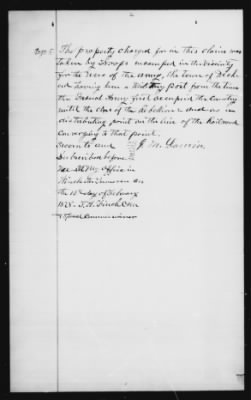 Page 5. The property charged for in this claim was
taken by troops encamped in the vicinity
for the use of the army, the town of
having been a Military post from the time
the Federal Army first occupied the Country
until the close of the Rebellion &
distributing point on the line of the Railroad
converging to that point.
Sworn to and J. M.
Subscribed before
me at my office in
Tennessee on
the 15 day of February
1878
Special Commissioner